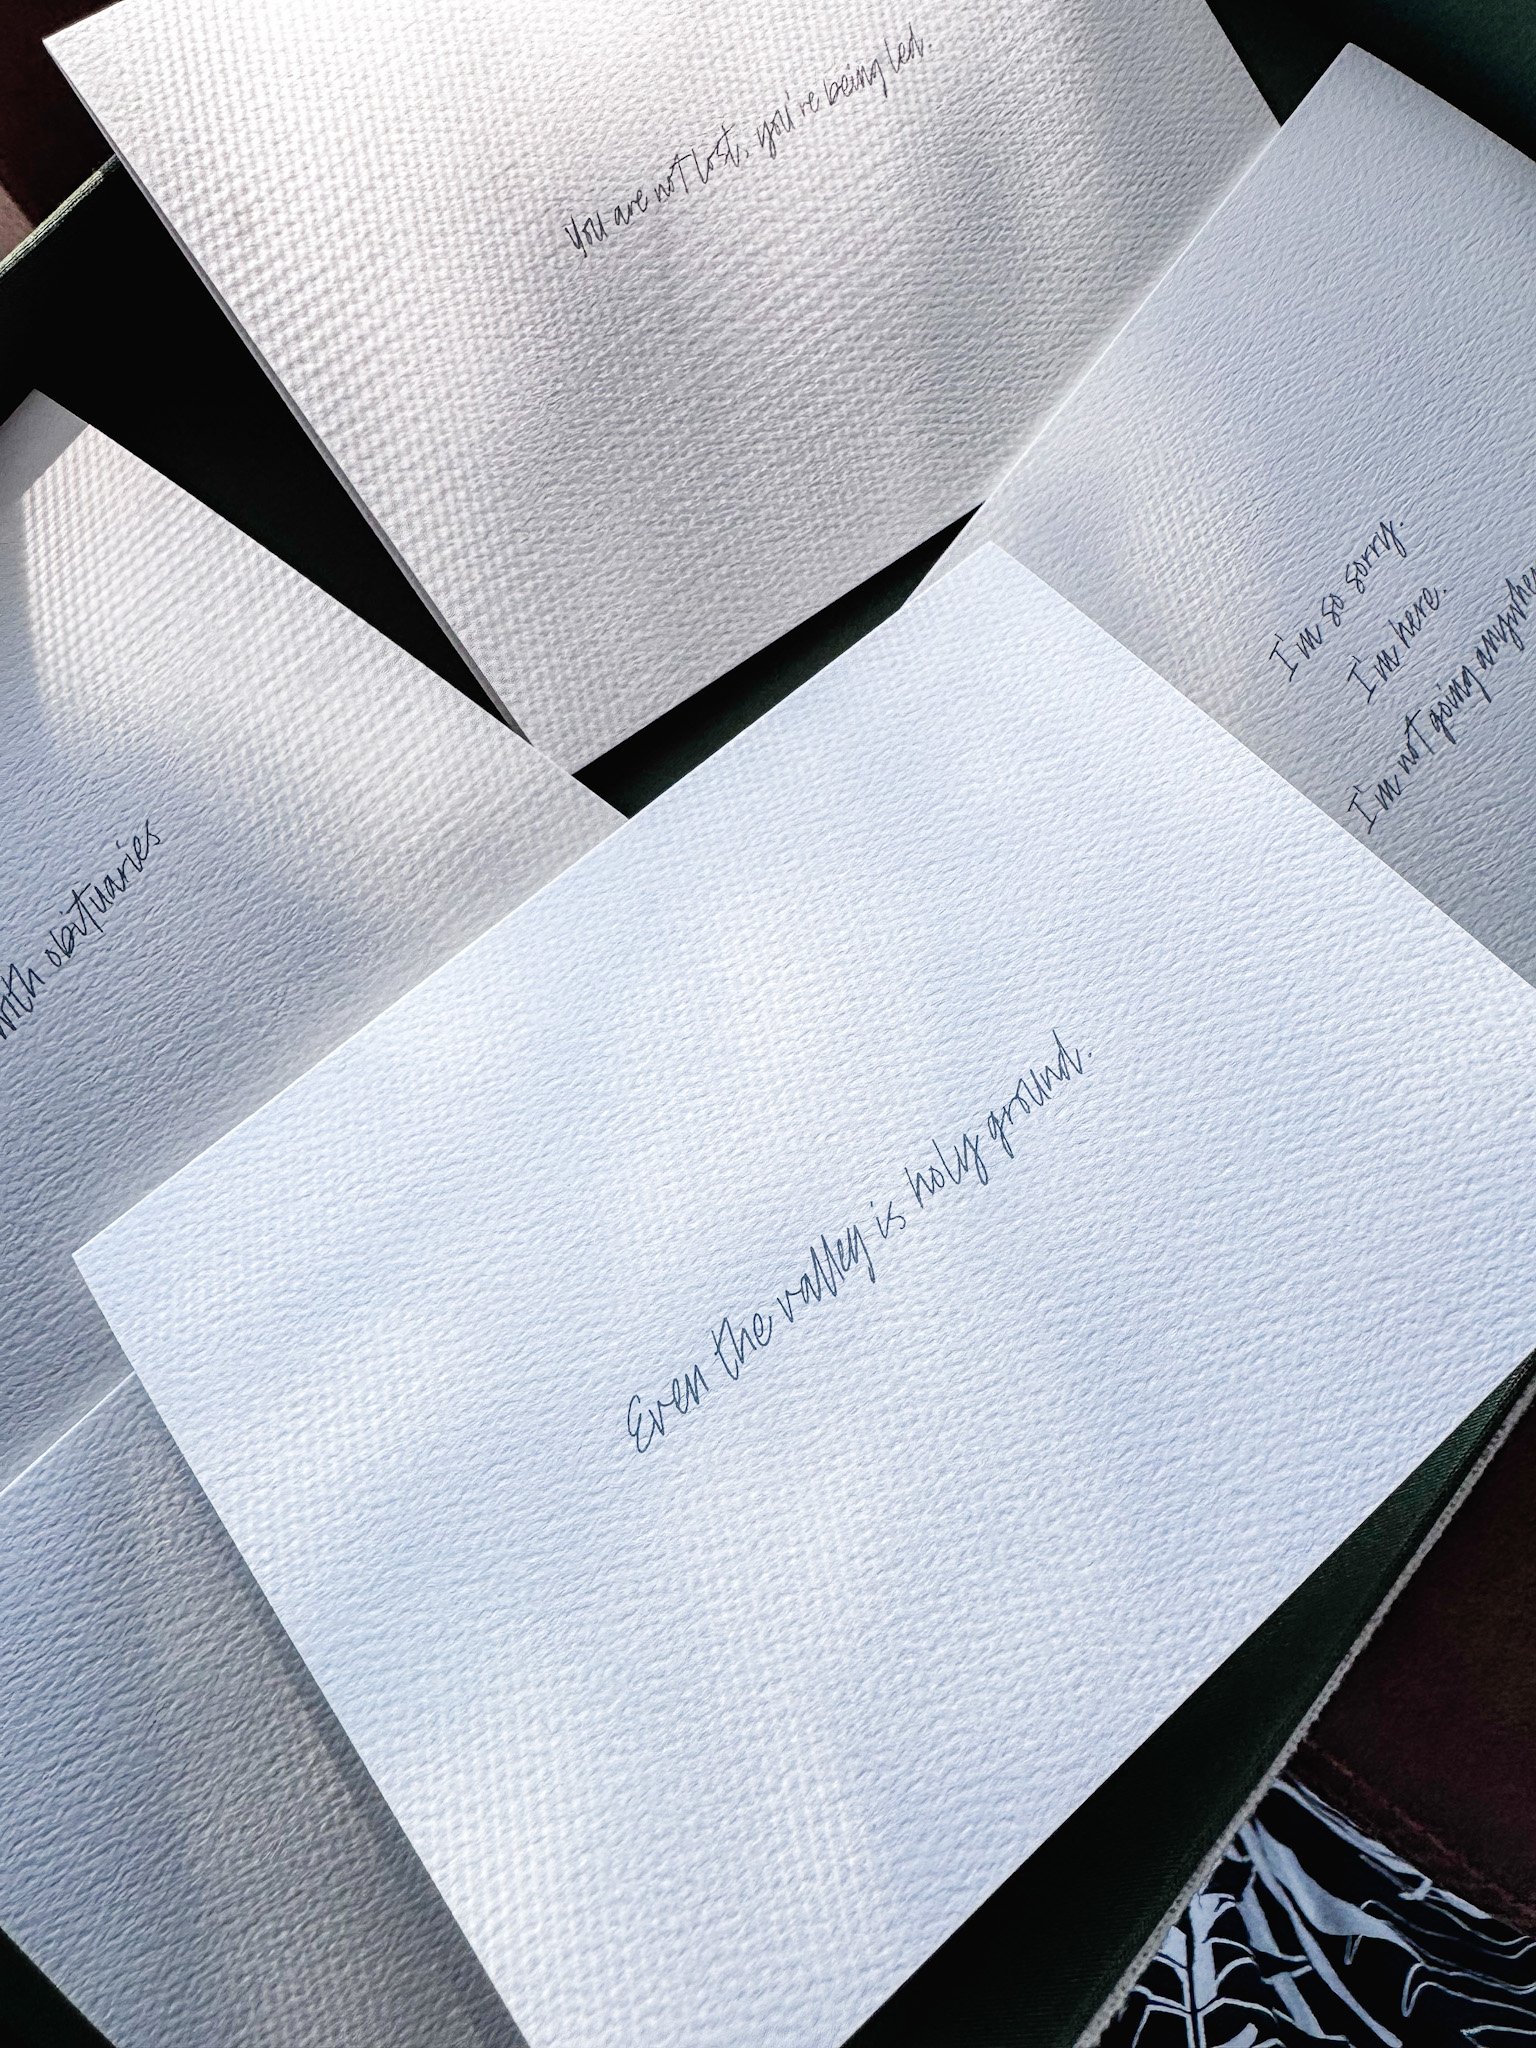 you are not lost, you're being led.
I'm so sorry.
I'm here.
I'm not going
with obituaries
Even the valley is holy ground.